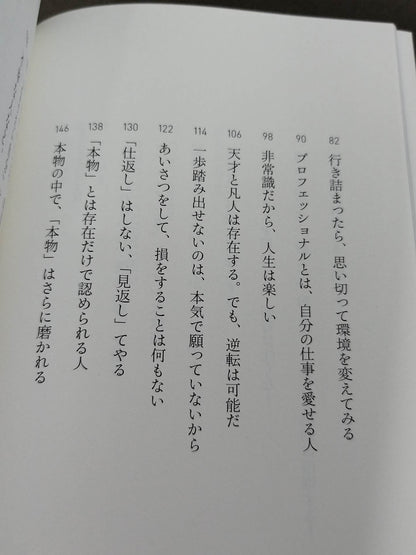 82 行き詰まったら、思い切って環境を変えてみる
90 プロフェッショナルとは、自分の仕事を愛せる人
98 非常識だから、人生は楽しい
106 天才と凡人は存在する。でも、逆転は可能だ
114 一歩踏み出せないのは、本気で願っていないから
122 あいさつをして、損をすることは何もない
130 「仕返し」はしない、「見返し」てやる
138 「本物」とは存在だけで認められる人
146 本物の中で、「本物」はさらに磨かれる